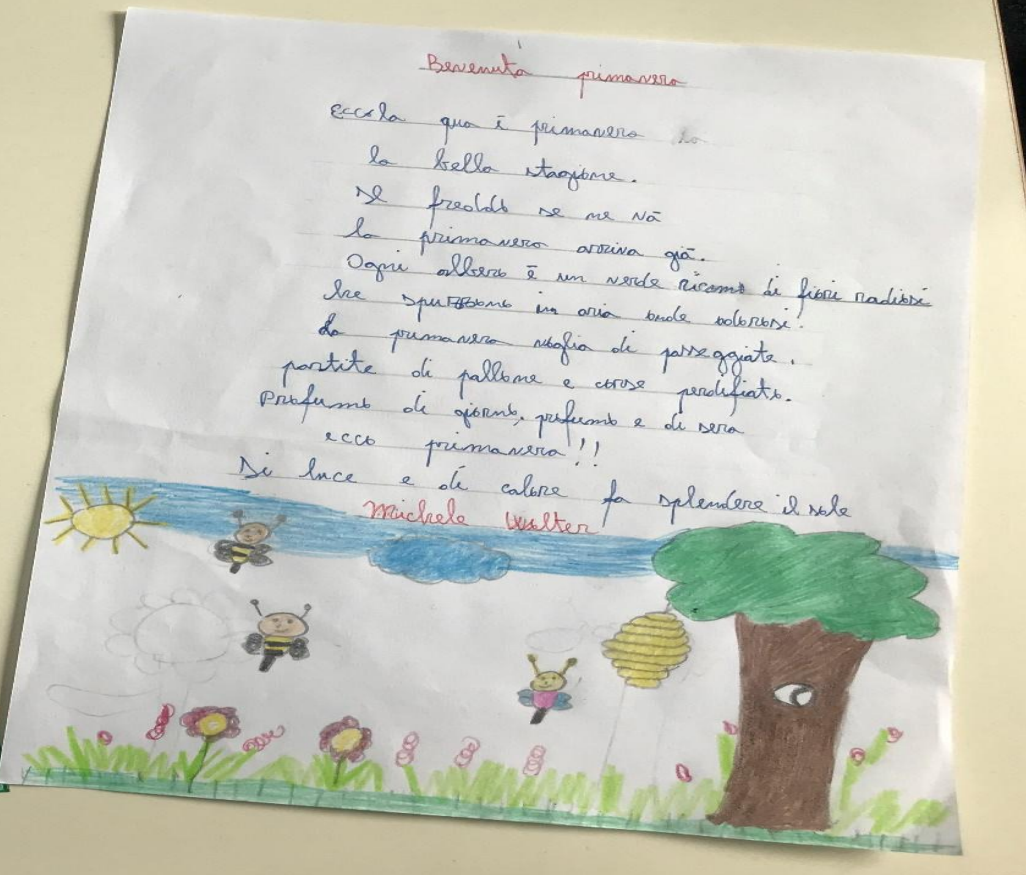 Benvenuta primavera
Eccola qua è primavera
la bella stagione.
Il freddo se ne và
la primavera arriva già.
Ogni albero è un verde ricamo di fiori radiosi
che spuzzano in aria onde odorosi.
La primavera voglia di passeggiate.
partite di pallone e corse perdifiato.
Profumo di giorno, profumo e di sera
ecco primavera!!
Di luce e di calore fa splendere il sole
Michele Walter